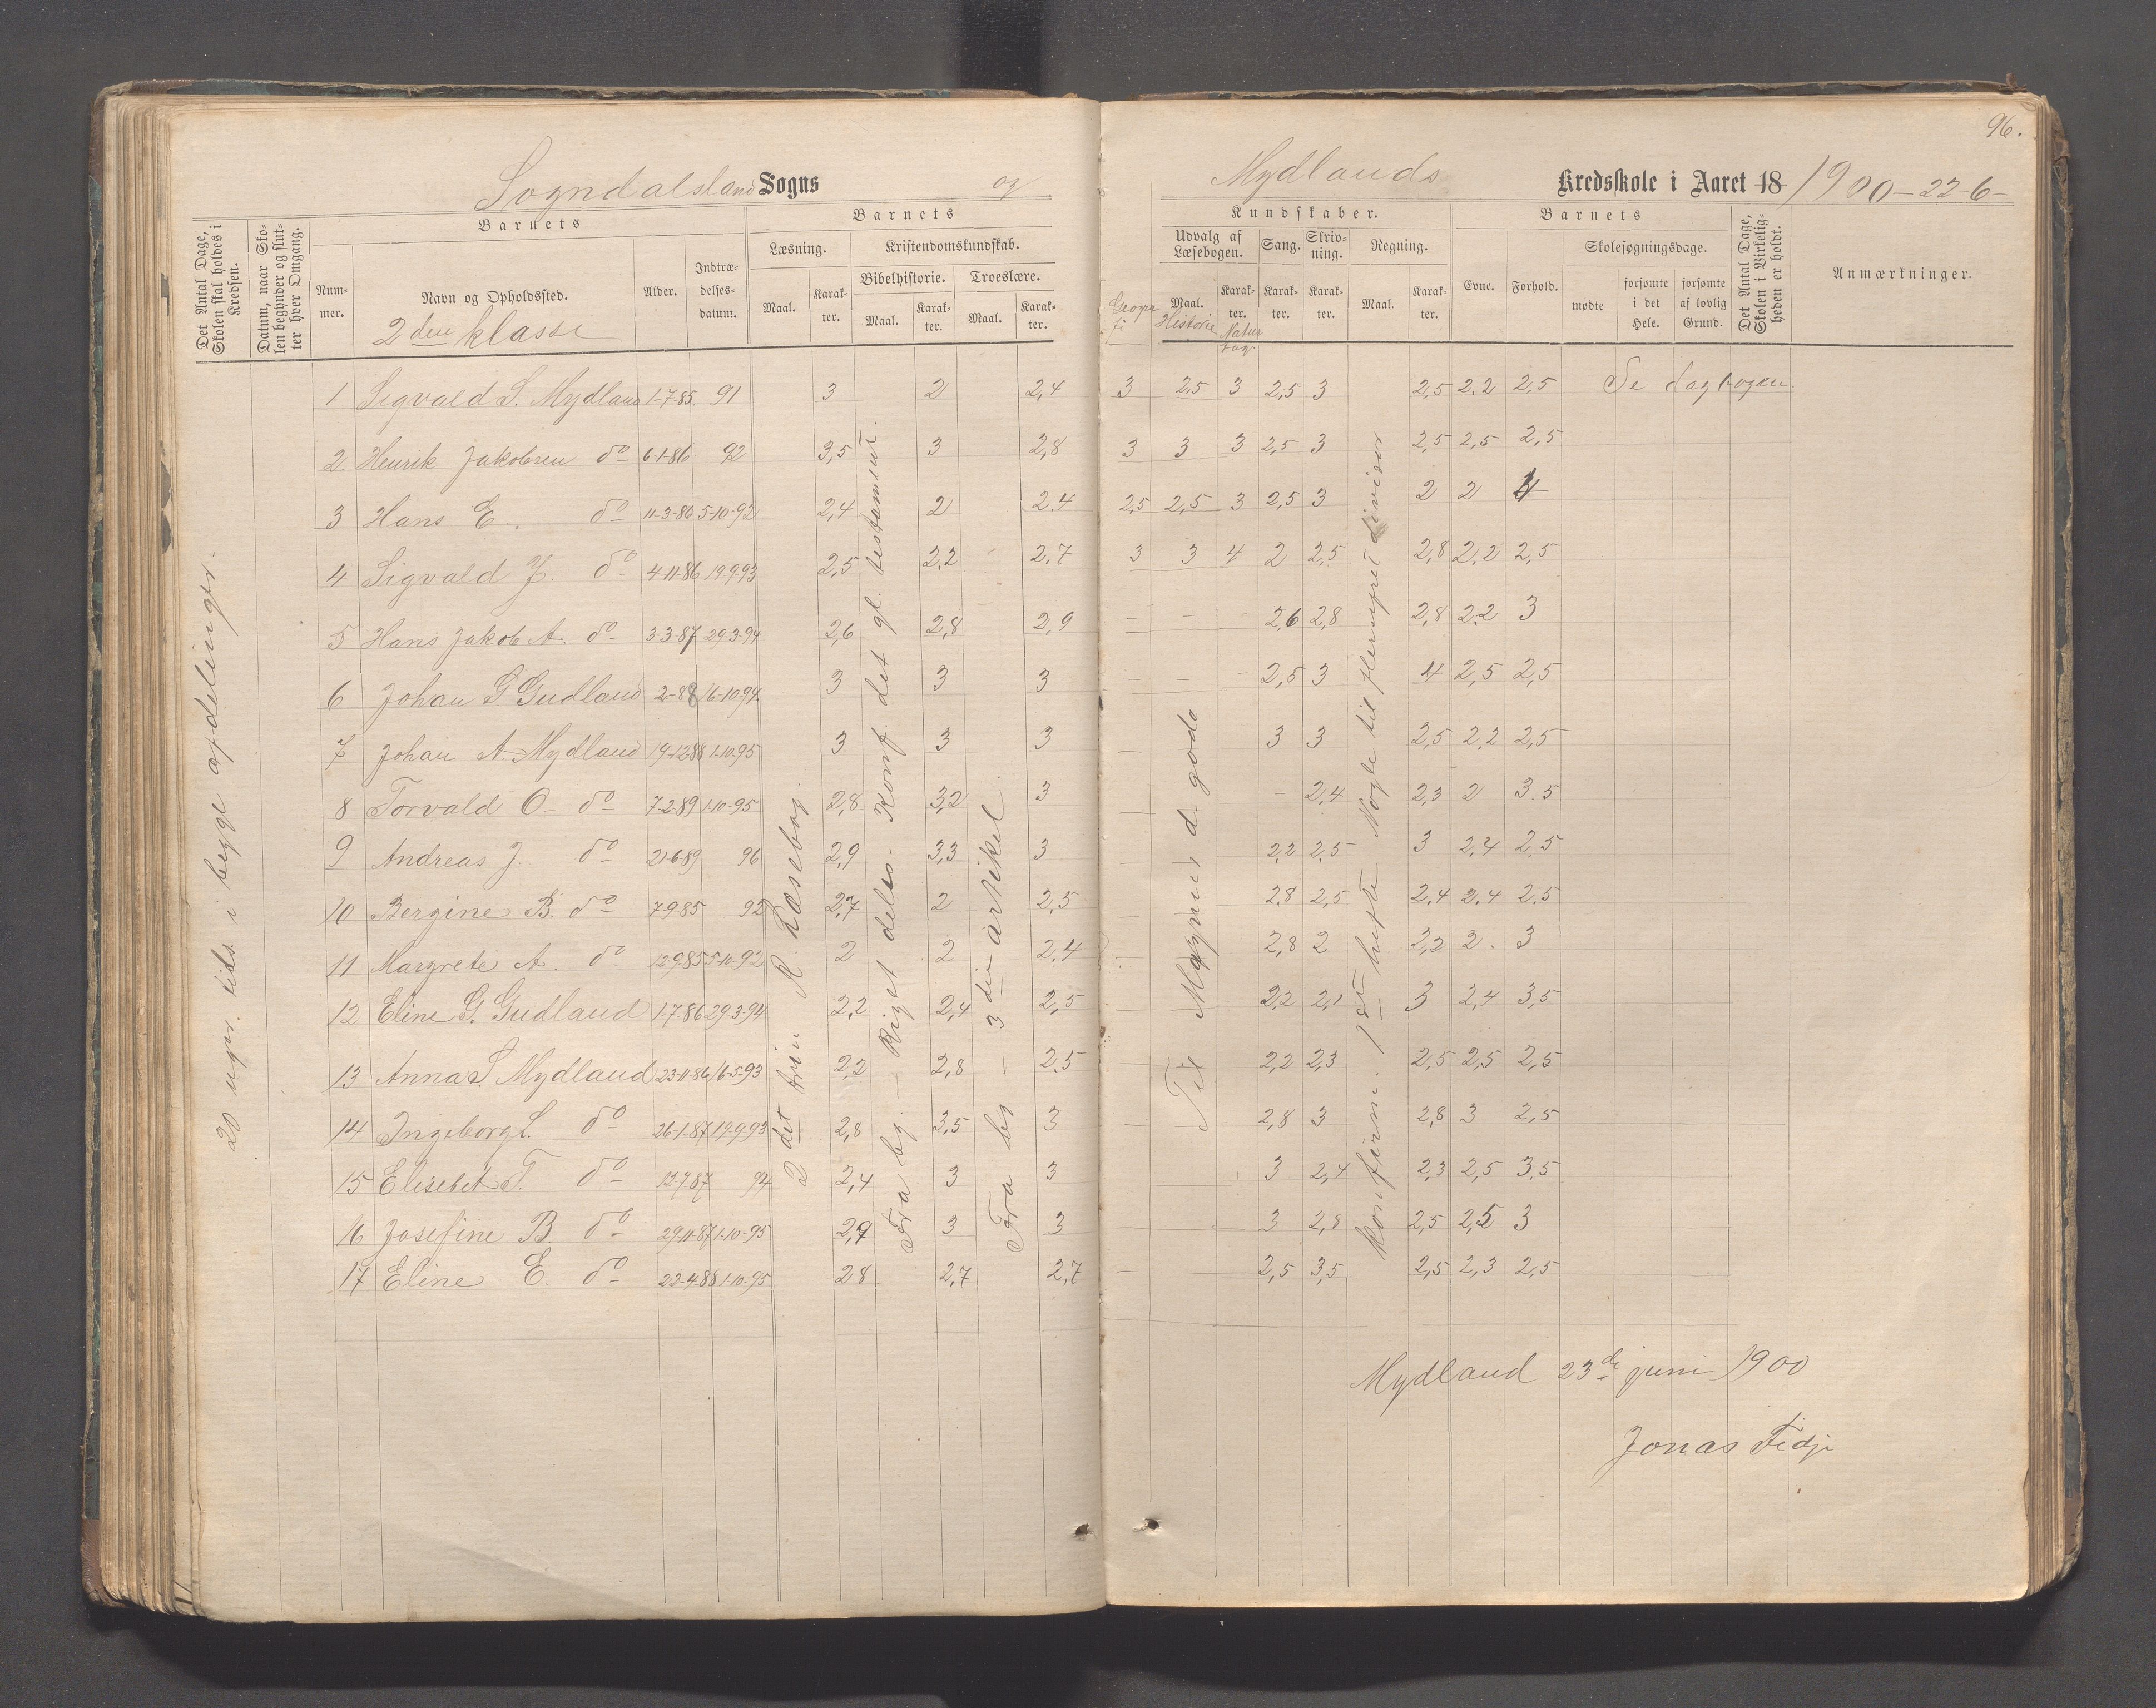 96.
Sogndalsland Sogns og Mydlands Kredsskole i Aaret 18 1900-22-6-
Det Antal Dage, Skolen skal holdes i Kredsen.
Datum, naar Skolen begynder og slutter hver Omgang.
Barnets
Nummer.
Navn og Opholdssted.
2den klasse
Alder.
Indtrædelsesdatum.
Barnets
Læsning.
Maal.
Karakter.
Kristendomskundskab.
Bibelhistorie.
Maal.
Karakter.
Troeslære.
Maal.
Karakter.
Kundskaber.
Udvalg af Læsebogen.
Maal.
Historie
Karakter.
Natur
Sang.
Karakter.
Skrivning.
Karakter.
Regning.
Maal.
Karakter.
Barnets
Evne.
Forhold.
Skolesøgningsdage.
mødte
forsømte i det Hele.
forsømte af lovlig Grund.
Det Antal Dage, Skolen i Virkeligheden er holdt.
Anmærkninger.
1 Sigvald S. Mydland 1-7-85. 91 3 2 2,4 3 2,5 3 2,5 3 2,5 2.2 2,5 Se dagbogen.
2. Henrik Jakobsen do 6-1-86 92 3,5 3 2,8 3 3 3 2,5 3 2,5 2,5 2,5
3 Hans E. do 11-3-86 5-10-92 2,4 2 2.4 2,5 2,5 3 2,5 3 2 2 4
4 Sigvald J. do 4-11-86 19-9-93 2,5 2,2 2.7 3 3 4 2 2,5 2,8 2,2 2,5
5 Hans Jakob A. do 3-3-87 29-3-94 2,6 2,8 2,9 - - - 2,6 2,8 2,8 2.2 3
6 Johan G Gudland 2-88 16-10-94. 3 3 3 - - - 2,8 3 4 2,5 2,5
7 Johan A. Mydland 19-12-88 1-10-95 3 3 3 - 3 3 2,5 2,2 2,5
8 Torvald O- do 7-2-89 1-10-95 2,8 3,2 3 - 2,4 2,3 2 3.5
9 Andreas J. do 21-6-89 96 2,9 3,3 3 - 2,2 2,5 3 2,4 2,5
10 Bergine B. do 7-9-85 92 2,7 2 2,5 2,8 2,5 2,4 2,4 2,5
11 Margrete A. do 12-9-85 5-10-92 2 2 2.4 - 2,8 2 2,2 2. 3
12 Eline G. Gudland 1-7-86 29-3-94 2,2 2,4 2,5 - 2,2 2,1 3 2,4 3,5
13 Anna S. Mydland 23-11-86 16-5-93 2,2 2,8 2.5 - 2,2 2,3 2,5 2,5 2,5
14 Ingeborg S. do 26-1-87 19-9-93 2,8 3,5 3 - 2,8 3 2,8 3 2,5
15 Elisebet T. do 12-7-87 94 2,4 3 3 3 2,4 2,3 2,5 3,5
16 Josefine B. do 29-11-87 1-10-95 2,9 3 3 - 3 2,8 2,5 2,5 3
17 Eline E. do 22-4-88 1-10-95 2 8 2,7 2,7 - 2,5 3,5 2,5 2,3 2,5
20 uger. tids i begge afdelinger.
2det trin R. Læsebog.
Fra bg. - Riget deles. Komf. det gl. testament.
Fra bg - 3die artikel
Til Magnus d. gode
konfirm. 1ste hefte Nogle til flersifret divisor
Mydland 23de juni 1900
Jonas Fidje